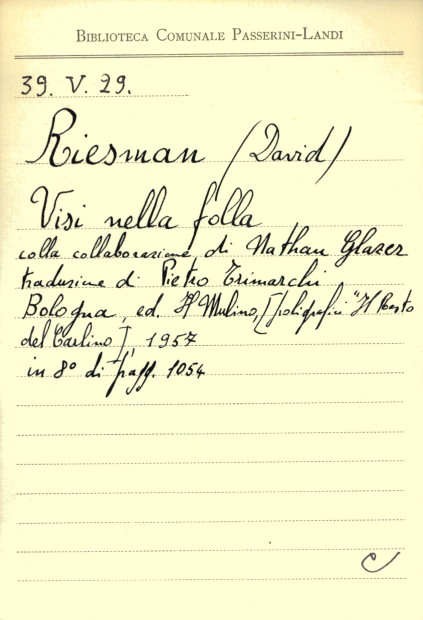 Biblioteca Comunale Passerini-Landi
39. V. 29.
Riesman (David)
Visi nella folla
colla collaborazione di Nathan Glazer
traduzione di Pietro Trimarchi
Bologna, ed. Il Mulino, [poligrafici "Il Resto
del Carlino], 1957
in 8° di pagg. 1054